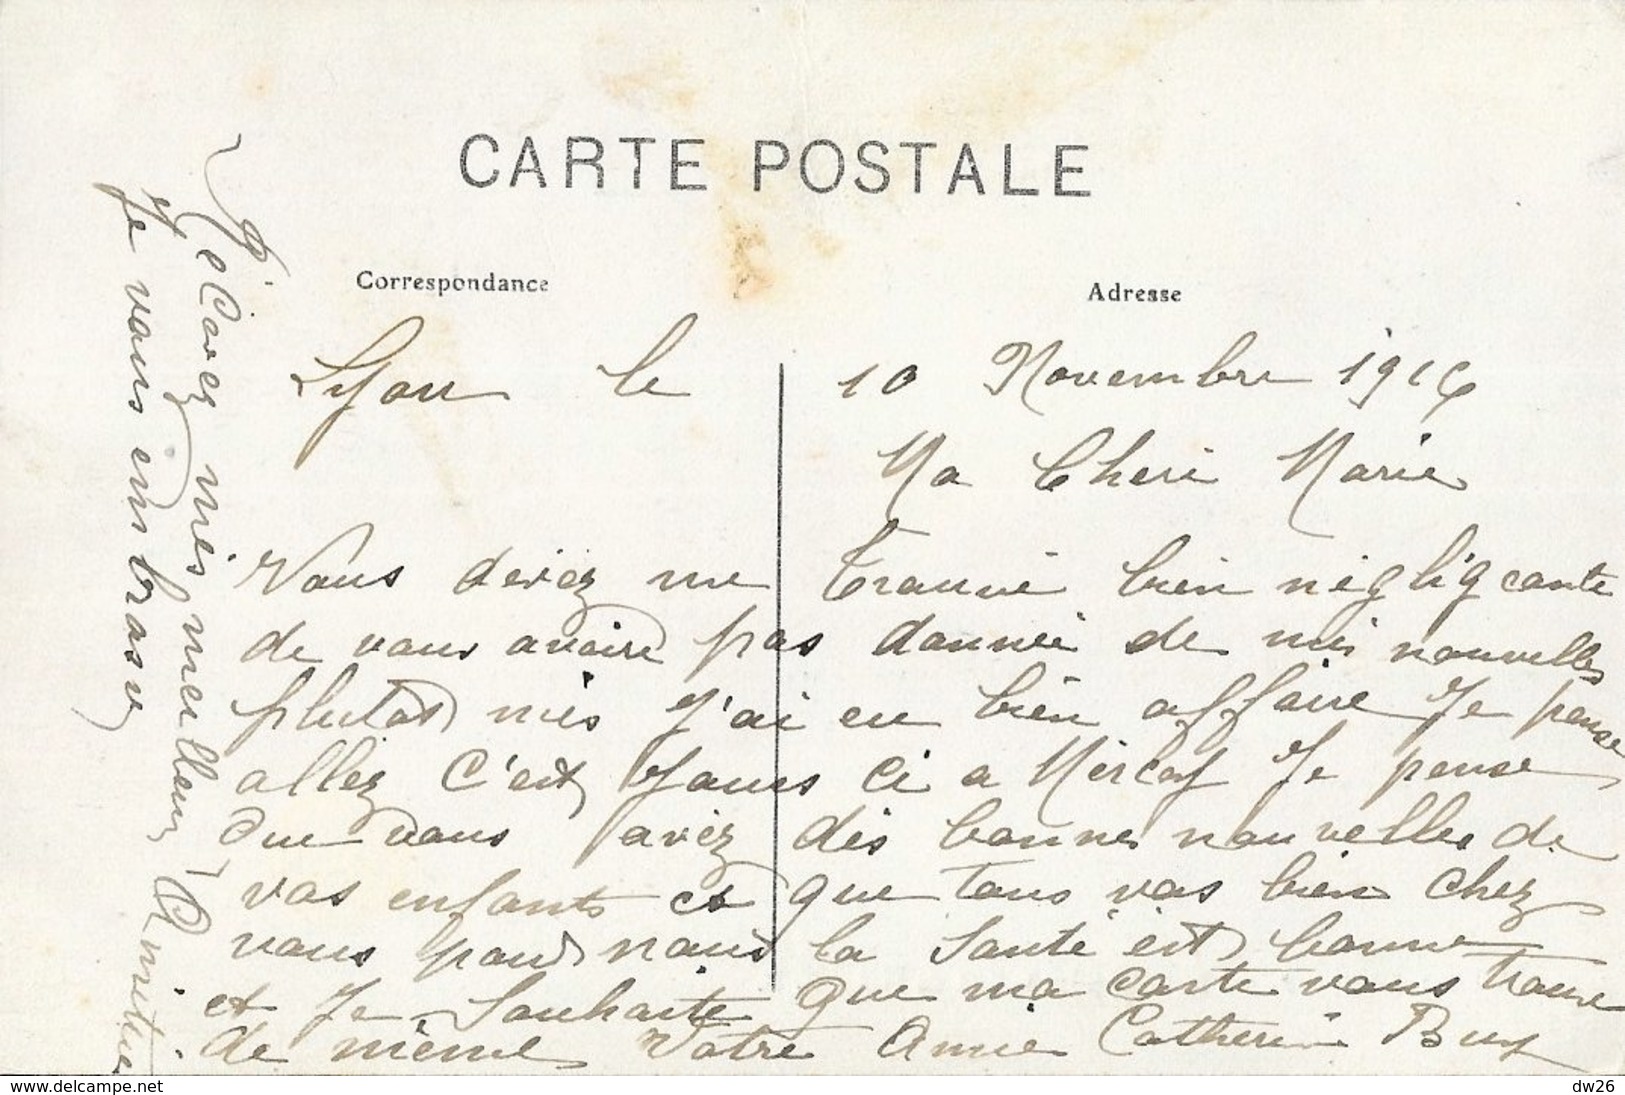 CARTE POSTALE
Correspondance
Adresse
Lyon le 10 Novembre 1916
Ma Cheri Marie
Vous devez me trouvé bien négligeante
de vous avoire pas donnéi de mes nouvelles
plutot mes J'ai eu bien affaire Je pense
allez c'est Jours ci a Je pense
que vous avéz dés bonnes nouvelles de
vos enfants et que tous vas bien chez
vous pour nous la santé est bonne
et Je Souhaite que ma carte vous trouve
de mème Votre Amie Catherine
Recevez mes meilleurs Amitiu
Je vous embrasse
delcampe.net
dw26